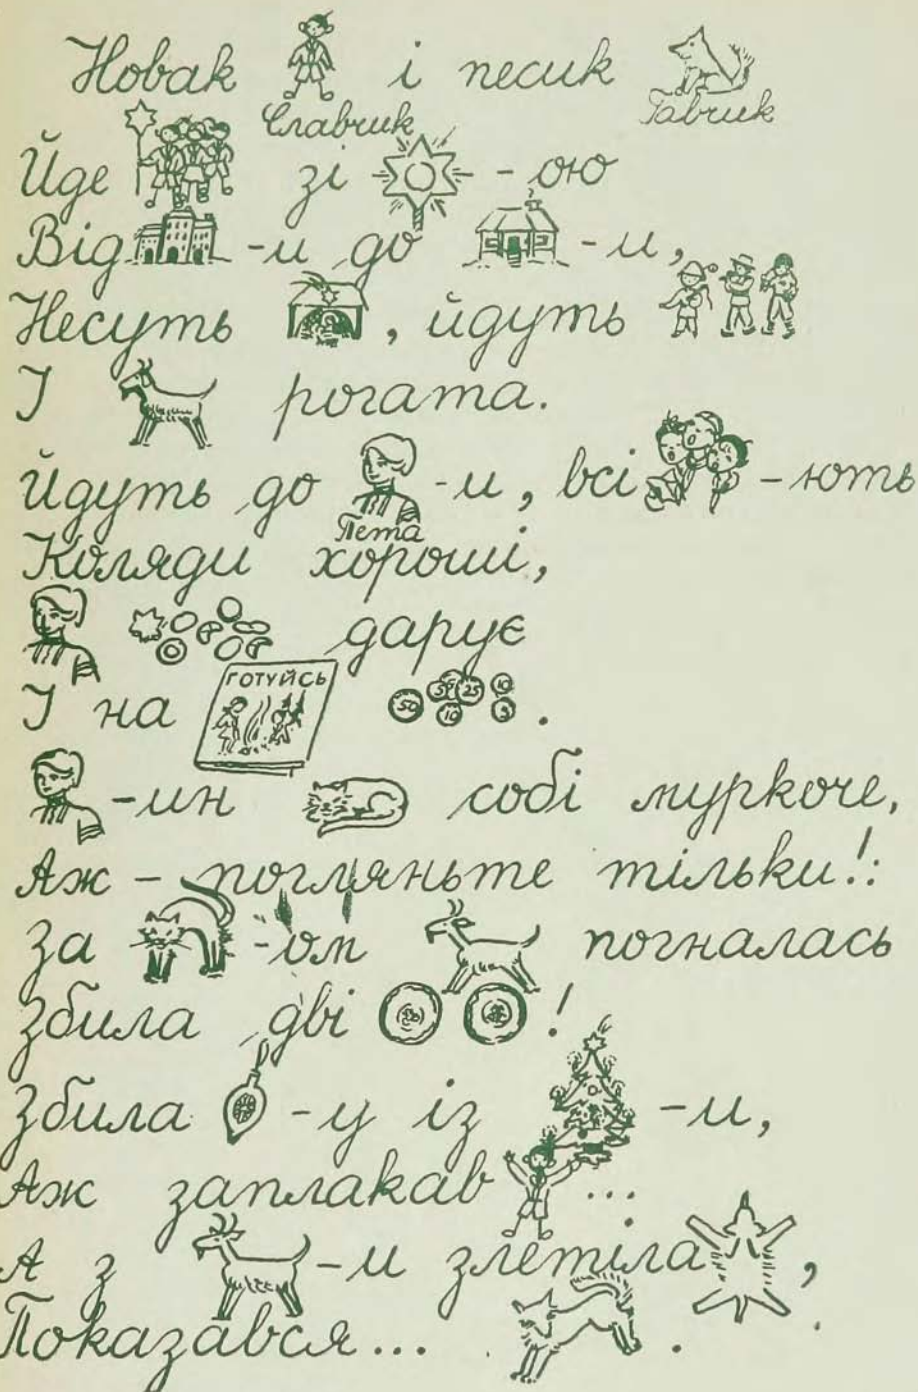 Новак і песик
Славчик Гавчик
Йде зі -ою
Від -и до -и,
Несуть , йдуть
І рогата.
Йдуть до -и, всі -ють
Пета
Коляди хороші,
дарує
І на ГОТУЙСЬ 50 10 25 10 .
-ин собі муркоче,
Аж - погляньте тільки!:
За -ом погналась
Збила дві !
Збила -у із -и,
Аж заплакав ...
А з -и злетіла ,
Показався... .